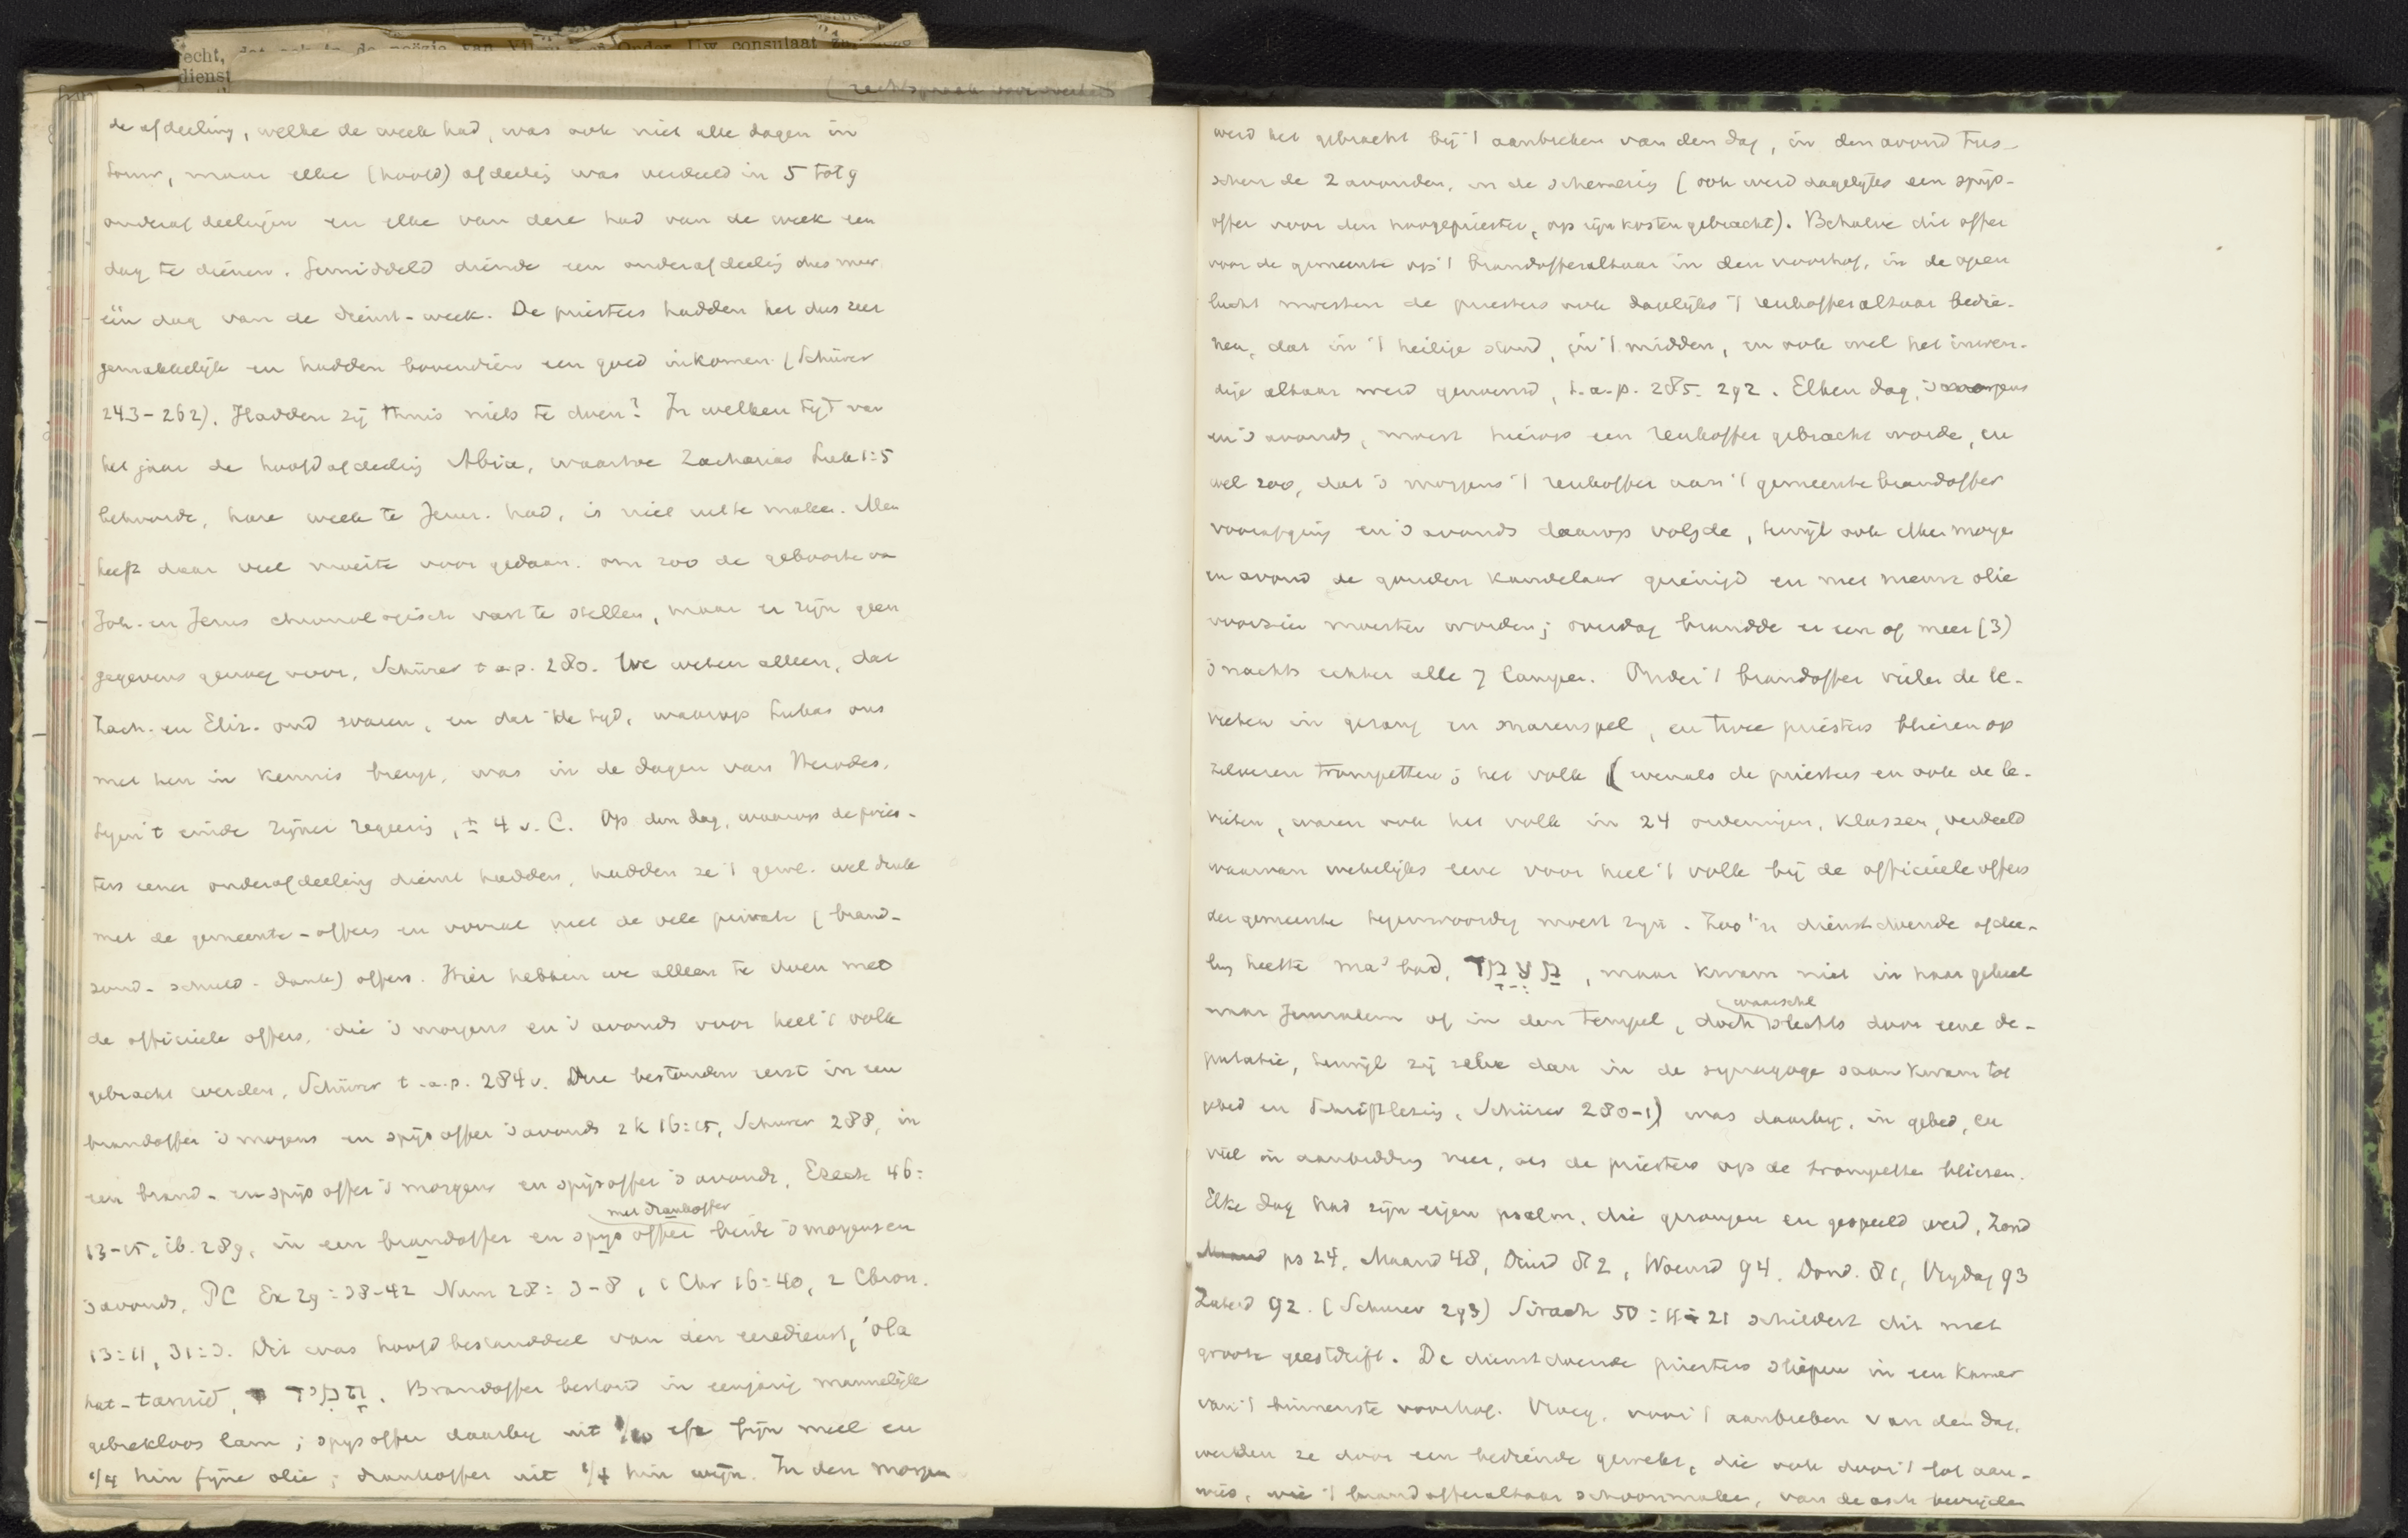 echt, dat ook in de poëzie van Onder Uw consulaat
dienst
de afdeeling, welke de week had, was ook niet alle dagen in
touw, maar elke (hoofd) afdeelig was verdeeld in 5 tot 9
onderafdeelingen en elke van deze had van de week een
dag te dienen. Gemiddeld diende een onderafdeelig dus maar
één dag van de dienst-week. De priesters hadden het dus zeer
gemakkelijk en hadden bovendien een goed inkomen (Schürer
243-262). Hadden zij thuis niets te doen? In welken tijd van
het jaar de hoofdafdeelig Abia, waartoe Zacharias Luk 1:5
behoorde, hare week te Jeruz. had, is niet uit te maken. Men
heeft daar veel moeite voor gedaan. om zoo de geboorte van
Joh. en Jezus chronologisch vast te stellen, maar er zijn geen
gegevens genoeg voor, Schürer t.a.p. 280. We weten alleen, dat
Zach. en Eliz. oud waren, en dat de tijd, waarop Lukas ons
met hen in kennis brengt, was in de dagen van Herodes,
tegen 't einde zijner regeerig, ± 4 v. C. Op den dag, waarop de pries-
ters eener onderafdeeling dienst hadden, hadden ze 't gew. wel druk
met de gemeente-offers en vooral met de vele private (brand-
zond- schuld- dank) offers. Hier hebben we alleen te doen met
de officieele offers, die 's morgens en 's avonds voor heel 't volk
gebracht werden, Schürer t.a.p. 284v. Deze bestonden eerst in een
brandoffer 's morgens en spijsoffer 's avonds 2 K 16:15, Schürer 288, in
een brand- en spijsoffer 's morgens en spijsoffer 's avonds, Ezech 46:
met drankoffer
13-15, ib. 289, in een brandoffer en spijsoffer beide 's morgens en
's avonds, PC Ex 29:38-42 Num 28:3-8, 1 Chr 16:40, 2 Chron.
13:11, 31:3. Dit was hoofdbestanddeel van den eeredienst, 'ola
hat-tamid, תָּמִיד. Brandoffer bestond in eenjarig mannelijk
gebrekloos lam; spijsoffer daarbij uit 1/10 efa fijn meel en
1/4 hin fijne olie; drankoffer uit 1/4 hin wijn. In den morgen
werd het gebracht bij 't aanbreken van den dag, in den avond tus-
schen de 2 avonden, in de schemerig (ook werd dagelijks een spijs-
offer voor den hoogepriester, op zijn kosten gebracht). Behalve dit offer
voor de gemeente op 't brandofferaltaar in den voorhof, in de open
lucht moesten de priesters ook dagelijks 't reukofferaltaar bedie-
nen, dat in 't heilige stond, in 't midden, en ook wel het inwen-
dige altaar werd genoemd, t.a.p. 285. 292. Elken dag, 's morgens
en 's avonds, moest hierop een reukoffer gebracht worde, en
wel zoo, dat 's morgens 't reukoffer aan 't gemeente brandoffer
voorafging en 's avonds daarop volgde, terwijl ook elken morge
en avond de gouden kandelaar gereinigd en met nieuwe olie
voorzien moesten worden; overdag brandde er een of meer (3)
's nachts echter alle 7 lampen. Onder 't brandoffer vielen de le-
vieten in gezang en snarenspel, en twee priesters bliezen op
zilveren trompetten; het volk (evenals de priesters en ook de le-
vieten, waren ook het volk in 24 ordeningen, klassen, verdeeld
waarvan wekelijks eene voor heel 't volk bij de officieele offers
der gemeente tegenwoordig moest zijn. Zoo'n dienstdoende afdee-
ling heette ma'amad, מַעֲמָד, maar kwam niet in haar geheel
waarschl
naar Jeruzalem of in den tempel, doch slechts door eene de-
putatie, terwijl zij zelve dan in de synagoge saam kwam tot
gebed en Schriftlezig, Schürer 280-1) was daarbij, in gebed, en
viel in aanbidding neer, als de priesters op de trompetten bliezen.
Elke dag had zijn eigen psalm, die gezongen en gespeeld werd, Zond
ps 24, Maand 48, Dinsd 82, Woensd 94, Dond. 81, Vrijdag 93
Zaterd 92. (Schürer 293) Sirach 50:11-21 schildert dit met
groote geestdrift. De dienstdoende priesters sliepen in een kamer
van 't binnenste voorhof. Vroeg, voor 't aanbreken van den dag,
werden ze door een bediende gewekt, die ook door 't lot aan-
wees, wie 't brandofferaltaar schoonmaken, van de asch bevrijden